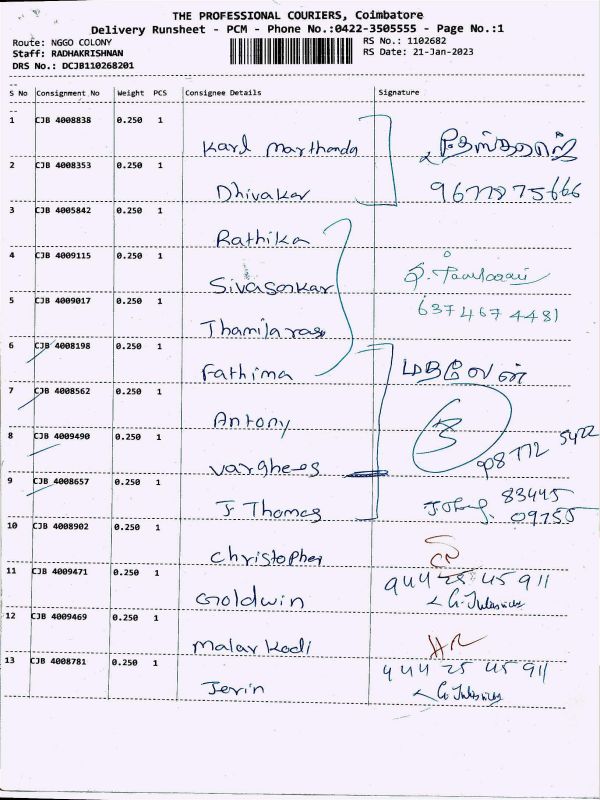 THE PROFESSIONAL COURIERS, Coimbatore
Delivery Runsheet - PCM - Phone No.:0422-3505555 - Page No.:1
Route: NGGO COLONY
RS No.: 1102682
Staff: RADHAKRISHNAN
RS Date: 21-Jan-2023
DRS No.: DCJB110268201
S No Consignment No Weight PCS Consignee Details Signature
1 CJB 4008838 0.250 1
Karl Marthanda
2 CJB 4008353 0.250 1
Dhivakar 9677875666
3 CJB 4005842 0.250 1
Rathika
4 CJB 4009115 0.250 1
Sivasankar
5 CJB 4009017 0.250 1
637467 4481
Thamilarasi
6 CJB 4008198 0.250 1
Fathima
7 CJB 4008562 0.250 1
Antony
8 CJB 4009490 0.250 1
Varghees
9 CJB 4008657 0.250 1
83445
J Thomas 09755
10 CJB 4008902 0.250 1
Christopher
11 CJB 4009471 0.250 1
944 25 45 911
Goldwin
12 CJB 4009469 0.250 1
Malarkodi HR
13 CJB 4008781 0.250 1
444 25 45 911
Jerin